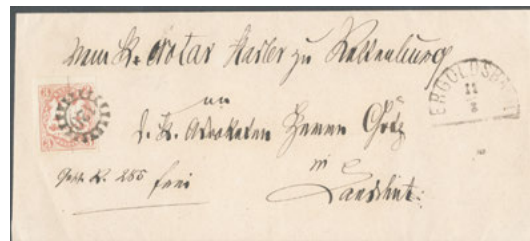 Vom K. Notar Kesler zu Rottenburg
ERGOLDSBACH
11
8
an
d. K. Advokaten Herrn Götz
in
Gesch. R. 255 frei
Landshut.